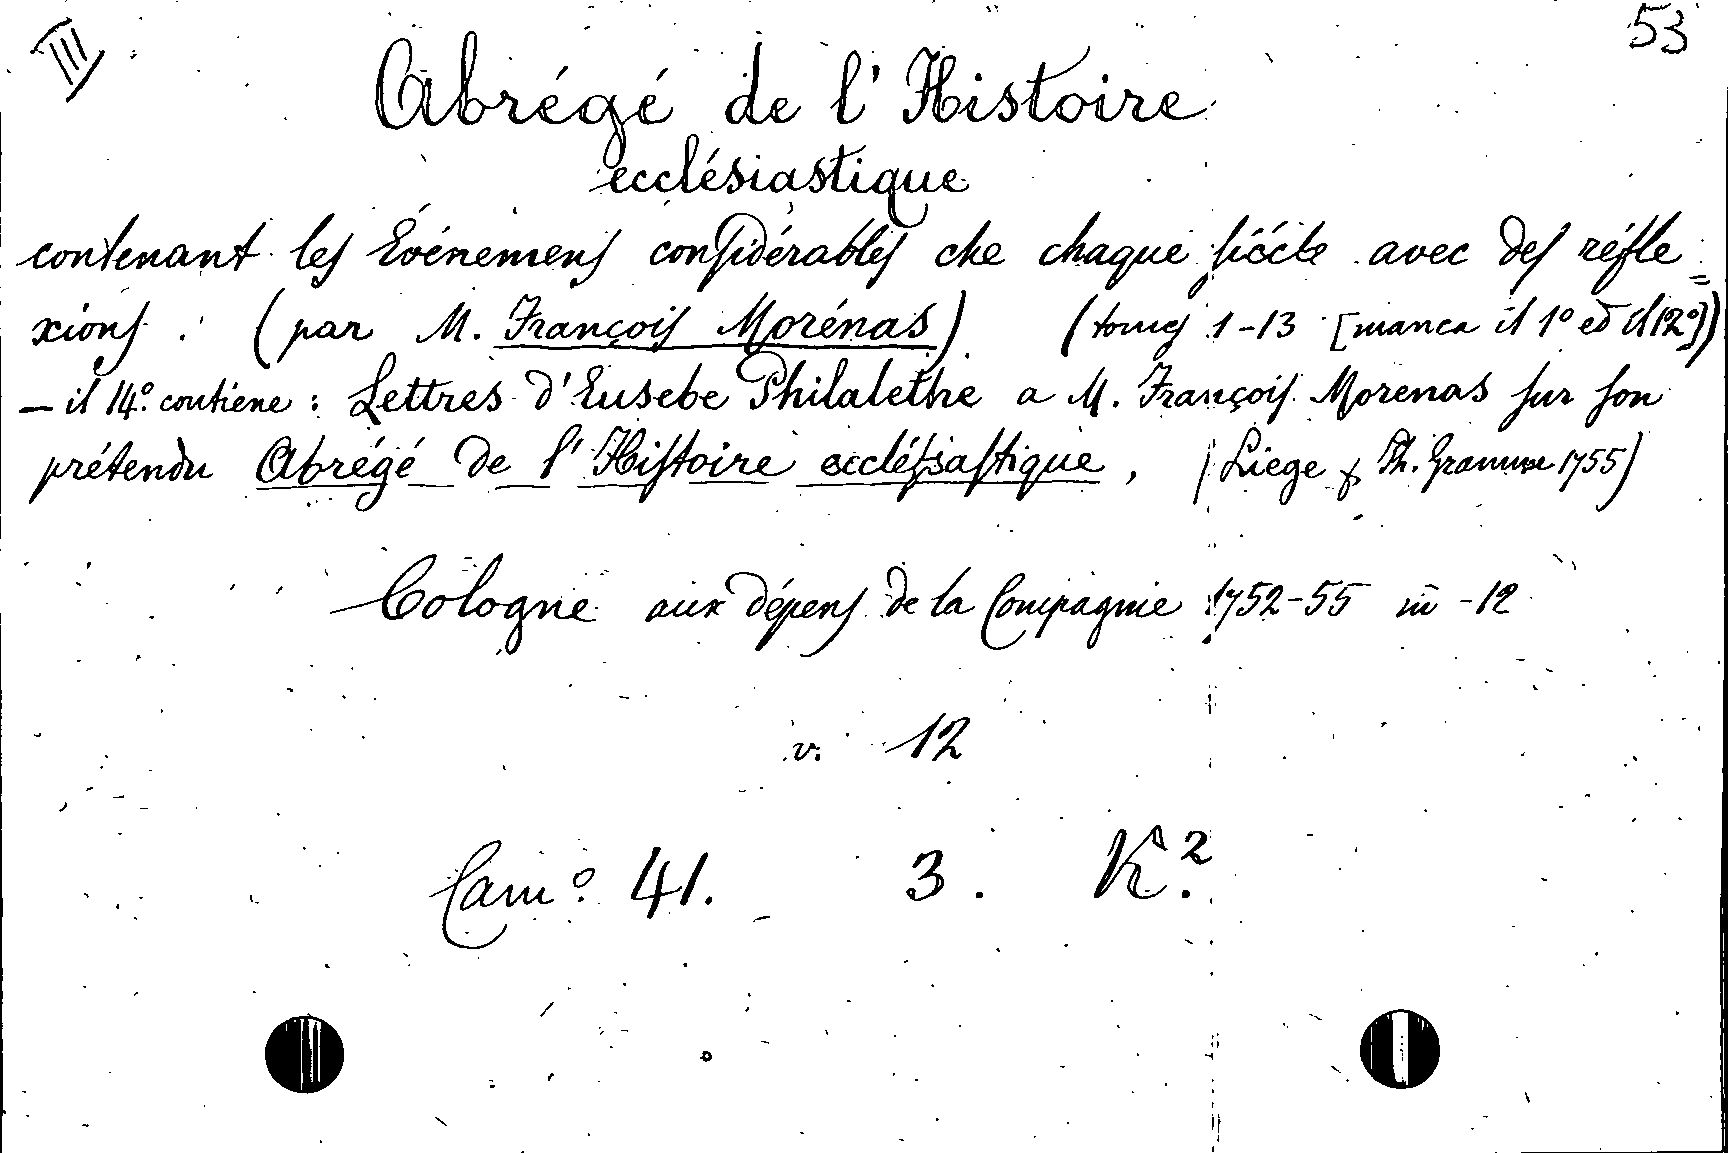 III
53
Abrégé de l'Histoire
ecclésiastique
contenant les Evénemens considérables de chaque siécle avec des réfle=
xions. (par M. François Morénas) (tomes 1-13 [manca il 1º ed il 12º])
— il 14º. contiene: Lettres d'Eusebe Philalethe a M. François Morenas sur son
prétendu Abrégé de l'Histoire ecclésiastique, (Liege Ph. Gramme 1755)
Cologne aux dépens de la Compagnie 1752-55 in -12
v. 12
Camº. 41. 3. K.²